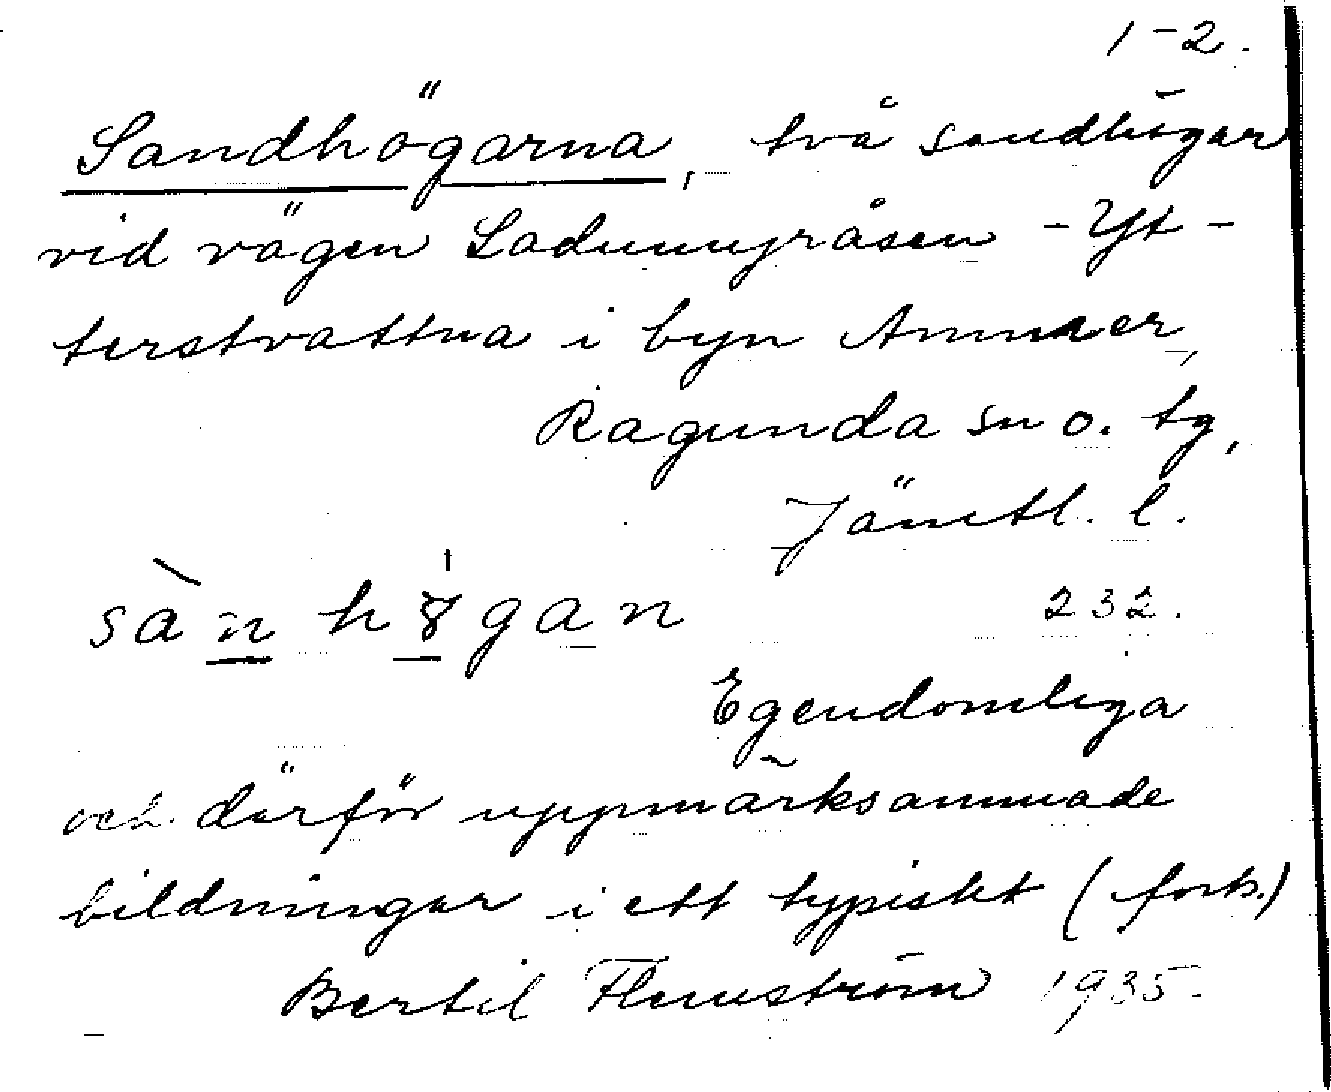 1-2.
Sandhögarna, två sandhögar
vid vägen Ladumyråsen - Yt-
terstvattna i byn Ammer,
Ragunda sn o. tg,
Jämtl. l.
sàn høgan 232.
Egendomliga
och därför uppmärksammade
bildningar i ett typiskt (forts.)
Bertil Flemström 1935.